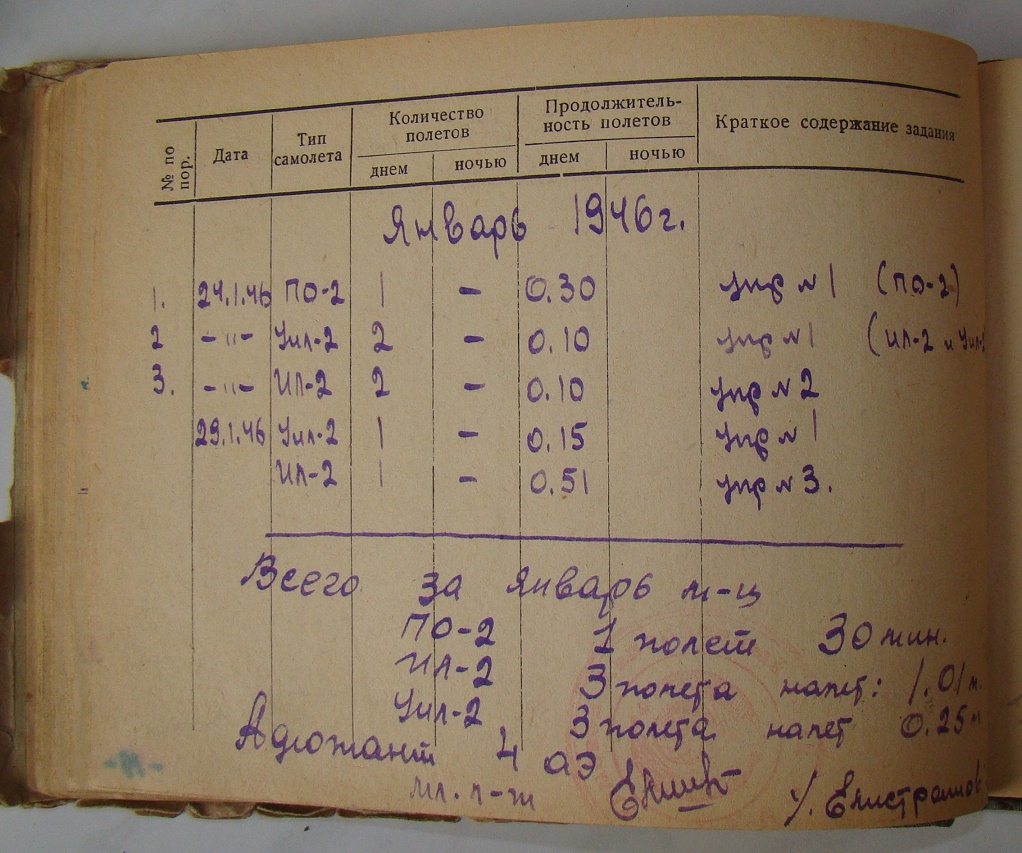 № по пор. Дата Тип самолета Количество полетов Продолжитель-ность полетов Краткое содержание задания
днем ночью днем ночью
Январь 1946г.
1. 24.1.46 ПО-2 1 - 0.30 упр №1 (ПО-2)
2 -"- Уил-2 2 - 0.10 упр №1 (ИЛ-2 и Уил-2
3. -"- ИЛ-2 2 - 0.10 упр №2
29.1.46 Уил-2 1 - 0.15 упр №1
ИЛ-2 1 - 0.51 упр №3.
Всего за январь м-ц
ПО-2 1 полет 30 мин.
ИЛ-2 3 полета налет: 1.01 м.
Уил-2 3 полета налет 0.25 м
Адюжант 4 аэ
мл. л-т /. Елистратов